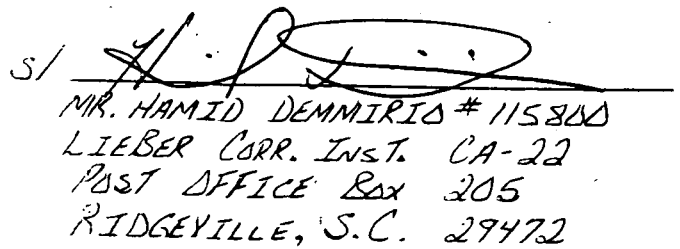 S/
MR. HAMID DEMMIRIO # 115800
LIEBER CORR. INST. CA-22
POST OFFICE BOX 205
RIDGEVILLE, S.C. 29472